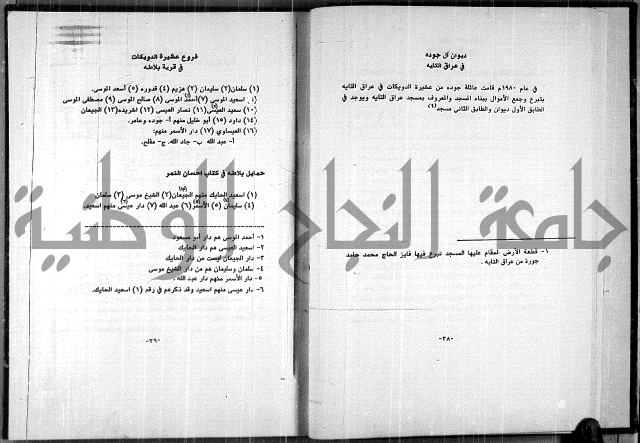 ديوان آل جوده
في عراق التايه
في عام ١٩٨٠م قامت عائلة جوده من عشيرة الدويكات في عراق التايه
بتبرع وجمع الأموال ببناء المسجد والمعروف بمسجد عراق التايه ويوجد في
الطابق الأول ديوان والطابق الثاني مسجد
١- قطعة الأرض المقام عليها المسجد تبرع فيها فايز الحاج محمد حامد
جورة من عراق التايه .
-٣٨-
فروع عشيرة الدويكات
في قرية بلاطه
(١) سلمان (٢) سليمان (٣) هزيم (٤) قدوره (٥) أسعد الموسى.
اسعيد الموسى (٧) أحمد الموسى (٨) صالح الموسى (٩) مصطفى الموسى
(١٠) سعيد العيسى (١١) نصار العيسى (١٢) اشريده (١٣) الجيعان
(١٤) داود (١٥) أبو خليل منهم أ- جوده وعامر.
(١٦) العيساوي (١٧) دار الأسمر منهم:
أ- عبد الله ب- جاد الله. ج- مفلح.
حمايل بلاطه في كتاب احسان النمر
(١) اسعيد الحايك منهم الجيعان (٢) الشيخ موسى (٣) سلمان
(٤) سليمان (٥) الأسمر (٦) عبد الله (٧) دار عيسى منهم اسعيد.
١- أحمد الموسى هم دار أبو مسعود
٢- سعيد العيسى هم دار الحايك
٣- دار الجيعان ليست من دار الحايك
٤- سلمان وسليمان هم من دار الشيخ موسى
٥- دار الأسمر منهم دار عبد الله .
٦- دار عيسى منهم اسعيد وقد ذكرهم في رقم (١) اسعيد الحايك.
-٣٩-
جامعة النجاح الوطنية